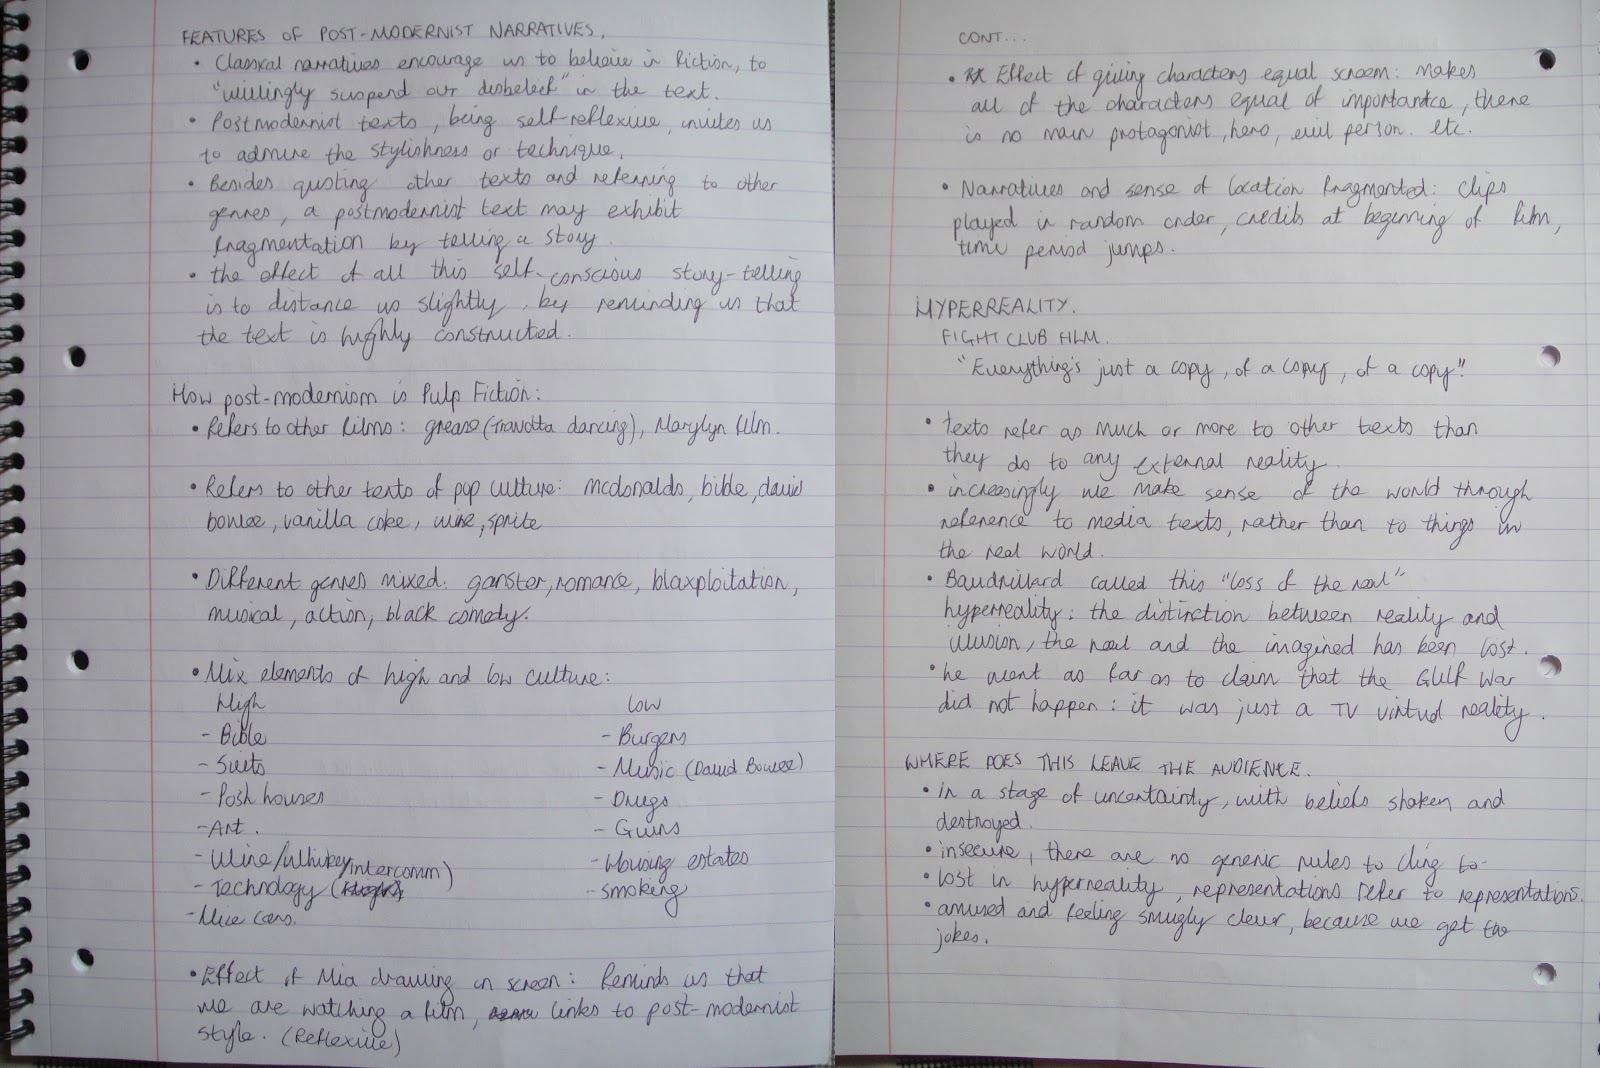 FEATURES OF POST-MODERNIST NARRATIVES.
• Classical narratives encourage us to believe in fiction, to
"willingly suspend our disbelief" in the text.
• Postmodernist texts, being self-reflexive, invites us
to admire the stylishness or technique.
• Besides quoting other texts and referring to other
genres, a postmodernist text may exhibit
fragmentation by telling a story.
• the effect of all this self-conscious story-telling
is to distance us slightly, by reminding us that
the text is highly constructed.
How post-modernism is Pulp Fiction:
• Refers to other films: grease (Travolta dancing), Marylyn film.
• Refers to other texts of pop culture: mcdonalds, bible, david
bowie, vanilla coke, wine, sprite
• Different genres mixed: ganster, romance, blaxploitation,
musical, action, black comedy.
• Mix elements of high and low culture:
High Low
- Bible - Burgers
- Suits - Music (David Bowie)
- Posh houses - Drugs
- Art. - Guns
- Wine/Whiskey - Housing estates
- Technology (intercomm) - smoking
- Nice cars.
• Effect of Mia drawing on screen: Reminds us that
we are watching a film, links to post-modernist
style. (Reflexive)
CONT...
• Effect of giving characters equal screem: makes
all of the characters equal of importantce, there
is no main protagonist, hero, evil person. etc.
• Narratives and sense of location fragmented: clips
played in random order, credits at beginning of film,
time period jumps.
HYPERREALITY.
FIGHT CLUB FILM.
"Everything's just a copy, of a copy, of a copy".
• texts refer as much or more to other texts than
they do to any external reality.
• increasingly we make sense of the world through
reference to media texts, rather than to things in
the real world.
• Baudrillard called this "loss of the real"
hyperreality: the distinction between reality and
illusion, the real and the imagined has been lost.
• he went as far as to claim that the Gulf War
did not happen: it was just a TV virtual reality.
WHERE DOES THIS LEAVE THE AUDIENCE.
• in a stage of uncertaindy, with beliefs shaken and
destroyed.
• insecure, there are no generic rules to cling to-
• lost in hyperreality, representations refer to representations.
• amused and feeling smugly clever, because we get the
jokes.